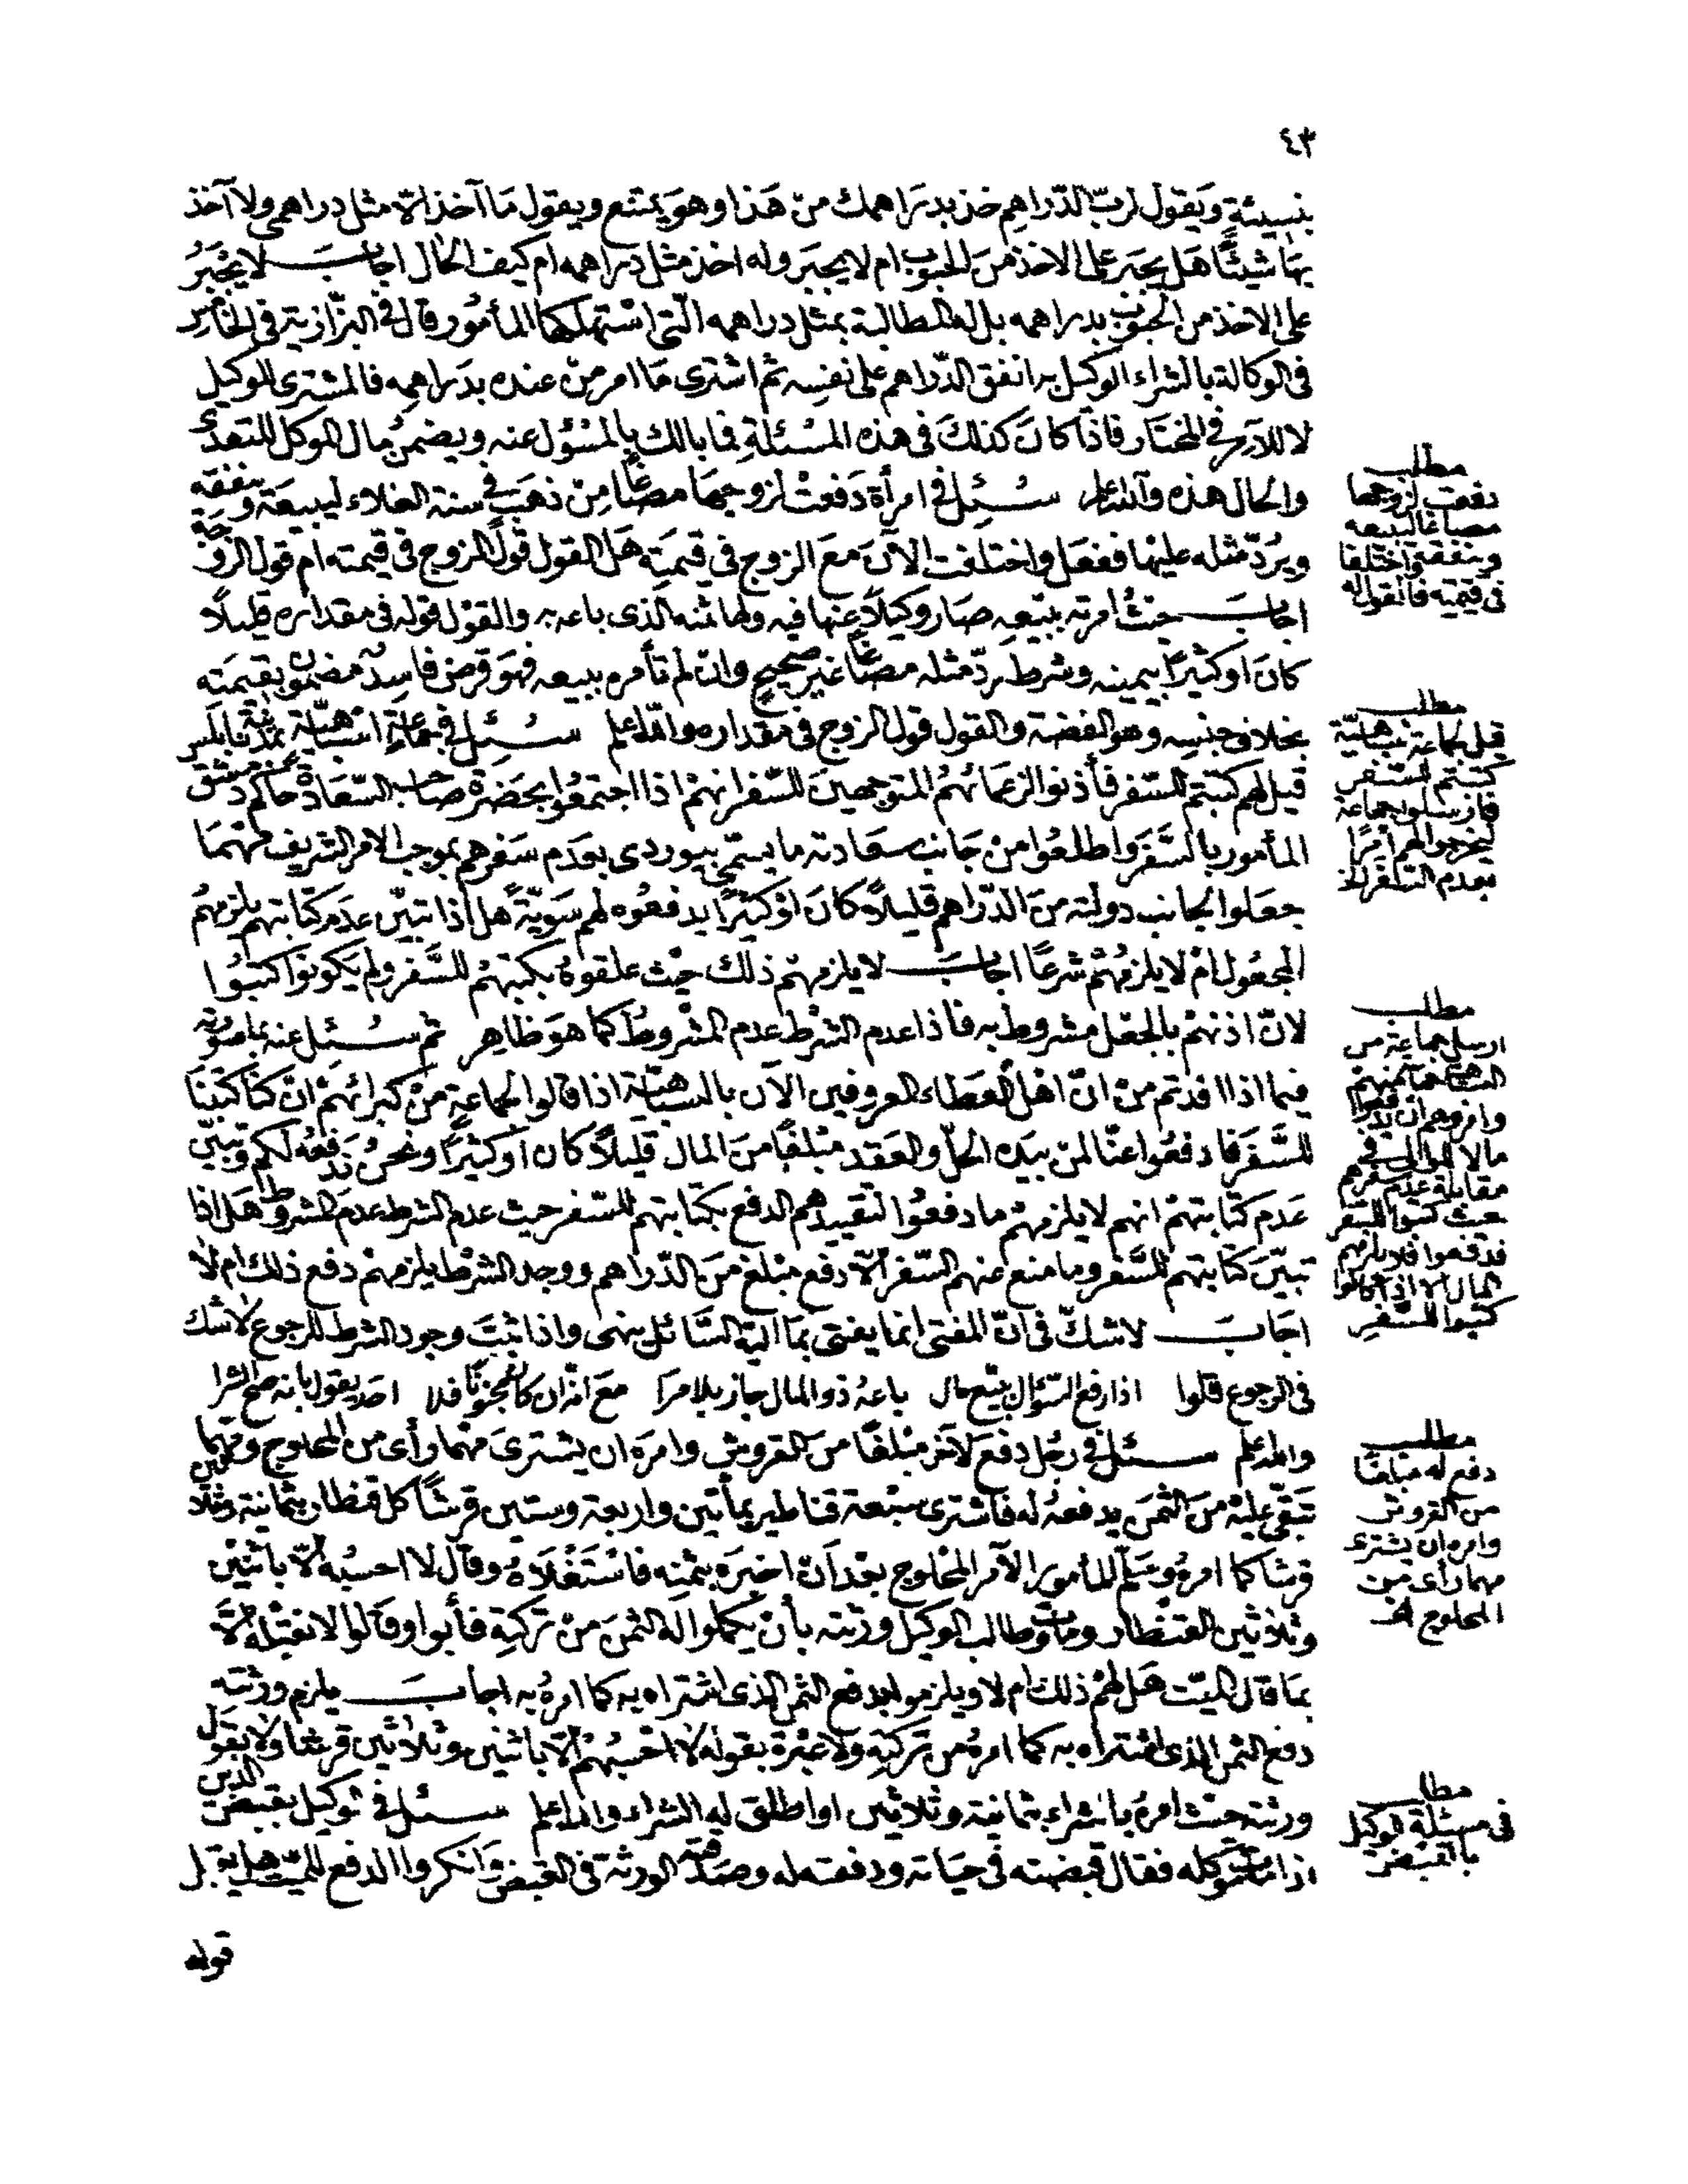 ٤٣
بنسيئةٍ ويقول لربّ الدّراهم خذ بدراهمك من هذا وهو يمتنع ويقول ما آخذ الّا مثل دراهمى ولا آخذ
بها شيئًا هل يجبر على الاخذ من الحبوب ام لا يجبر وله اخذ مثل دراهمه ام كيف الحال اجاب لا يجبرُ
على الاخذ من الحبوب بدراهمه بل له المطالبة بمثل دراهمه الّتى استهلكها المأمور قال فى البزّازية فى الخامس
فى الوكالة بالشراء الوكيل به انفق الدّراهم على نفسه ثم اشترى ما امر من عنده بدراهمه فالمشترى للوكيل
لا للآمر فى المختار فاذا كان كذلك فى هذه المسئلةِ فما بالك بالمسؤل عنه ويضمنُ مال الموكل للتعدى
والحال هذه والله اعلم سُئِل فى امرأة دَفعتْ لزوجها مصاغًا مِنْ ذهب فى سنة الغلاء ليبيعَه وينفقه
ويرُدّ مثله عليها ففعل واختلفت الآن معَ الزوج فى قيمتِه هَل القول قول الزوج فى قيمته ام قول الزوجة
اجاب حيثُ امرته ببيْعِه صار وكيلًا عنها فيه ولها ثمنه الّذى باعه به والقوْل قوله فى مقداره قليلًا
كانَ او كثيرًا بيمينه وشرط ردّ مثله مصاغًا غير صحيح وان لم تأمره ببيعه فهوَ قرض فاسدٌ مضمونٌ بقيمَته
بخلاف جنسِه وهو الفضة والقول قول الزوج فى مقداره والله اعلم سُئِل فى جماعَةٍ اسباهيّة بمدينة نابلس
قيل لهم كتبتم للسّفر فأذنوا لزعمائهمُ المتوجهين للسّفر انهمْ اذا اجتمعُوا بحضرة صاحب السّعادة حاكم دمشق
المأمور بالسَّفَر واطلعُوا من جَانب سعَادته ما يسمّى بيوردى بعدَم سَفرهم بموجب الامر الشريف فمهْمَا
جعَلوا لجانب دولته منَ الدّراهم قليلًا كانَ اوْ كثيرًا يدفعُوه لهم سَويّةً هل اذا تبيّن عدَم كتابتهم يلزمهمُ
المجعُول امْ لا يلزمُهُمْ شرعًا اجاب لا يلزمهم ذلك حيْث علقوهُ بكتبهمُ للسَّفر ولم يَكونوُا كتبوُا
لانّ اذنهمْ بالجعْل مشروط به فاذا عدم الشرْط عدم المشْروطُ كما هوَ ظاهِر ثم سُئِل عنه بما صورته
فيما اذا افدتم من انّ اهل العَطاء المعروفين الآن بالسباهيّة اذا قالوا لجماعَةٍ منْ كبرائهمْ انْ كنّا كتبنَا
للسَّفَر فادفعُوا عنّا لمن بيَده الحلّ والعَقد مبْلغًا منَ المال قليلًا كان أوْ كثيرًا ونحنُ ندفعُه لكم وتبيّن
عَدم كتابتهمْ انهم لا يلزمهمْ ما دفعُوا لتقييدهم الدفع بكتابتهم للسّفر حيث عدم الشرط عدمَ المشروط هَل اذا
تبيّنَ كتابتهم للسَّفر وما منع عنهم السّفر الّا دفع مبْلغ منَ الدّراهم ووجد الشرْط يلزمهمْ دفع ذلك ام لا
اجَابَ لا شكّ فى انّ المفتى انما يفتى بمَا اليه السَّائل ينهى واذا ثبَتَ وجود الشرط للرجوع لا شك
فى الرجوع قلوا اذا رفع السّؤال ببيْع مال باعهُ ذو المال جاز بلا مرا معَ انّه ان كان مجنونًا فلا احَد يقول بانه صح الشرا
والله اعلم سئل فى رجُل دفع لآخر مبْلغًا من القروش وامرَه ان يشترىَ مهْما رأى من المحلوج ومهما
تبَقّى عليْه منَ الثمن يدفعهُ له فاشترى سبْعة قناطير بمأتين واربعة وستين قرشًا كل قنطار بثمانية وثلاثين
قرشا كما امرهُ وسلّم المأمور الآمر المحْلوج بعْد اَن اخبَرَه بثمنِه فاسْتَغْلاهُ وقال لا احسبُه الّا باثنيْن
وثلاثين القنطار ومات وطالب الوكيل ورثته بأنْ يكملوا له الثمن منْ تركتِه فأبوا وقالوا لا نقبله الّا
بمَا قال الميّت هَل لهُمْ ذلك ام لا ويلزموا بدفع الثمن الذى اشتراه به كما امرهُ به اجاب يلزم ورثته
دفع الثمن الذى اشتراه به كما امرهُ من تركتِه ولا عبْرة بقوله لا احْسبُه الّا باثنين وثلاثين قرشا ولا بقول
ورثته حيث امرهُ بالشراء بثمانية وثلاثين او اطلق له الشراء والله اعلم سئل فى توكيل بقبض الدين
اذا مات موكله فقال قبضته فى حيَاته ودفعته له وصَدّقته الورثة فى القبض وَانكروا الدفع للميّت هل يقبل
قوله
مطلب
دفعت لزوجها
مصاغا ليبيعه
وينفقه واختلفا
فى قيمته فالقول له
مطلب
قيل لجماعة سباهيّة
كتبتم للسّفر
فارسلوا جماعة
ليخرجوا لهم امرًا
بعدم السّفر الخ
مطلب
ارسل جماعة من
السباهية جماعة منهم
وامروهم ان يدفعوا
مالا للوالى فى
مقابلة عدم سفرهم
حيث كتبوا للسّفر
فدفعوا فلا يلزمهم
المال الا اذا كانوا
كتبوا للسّفر
مطلب
دفع له مبْلغًا
من القروش
وامره ان يشترى
مهما رأى من
المحلوج الخ
مطلب
فى مسئلة الوكيل
بالقبض